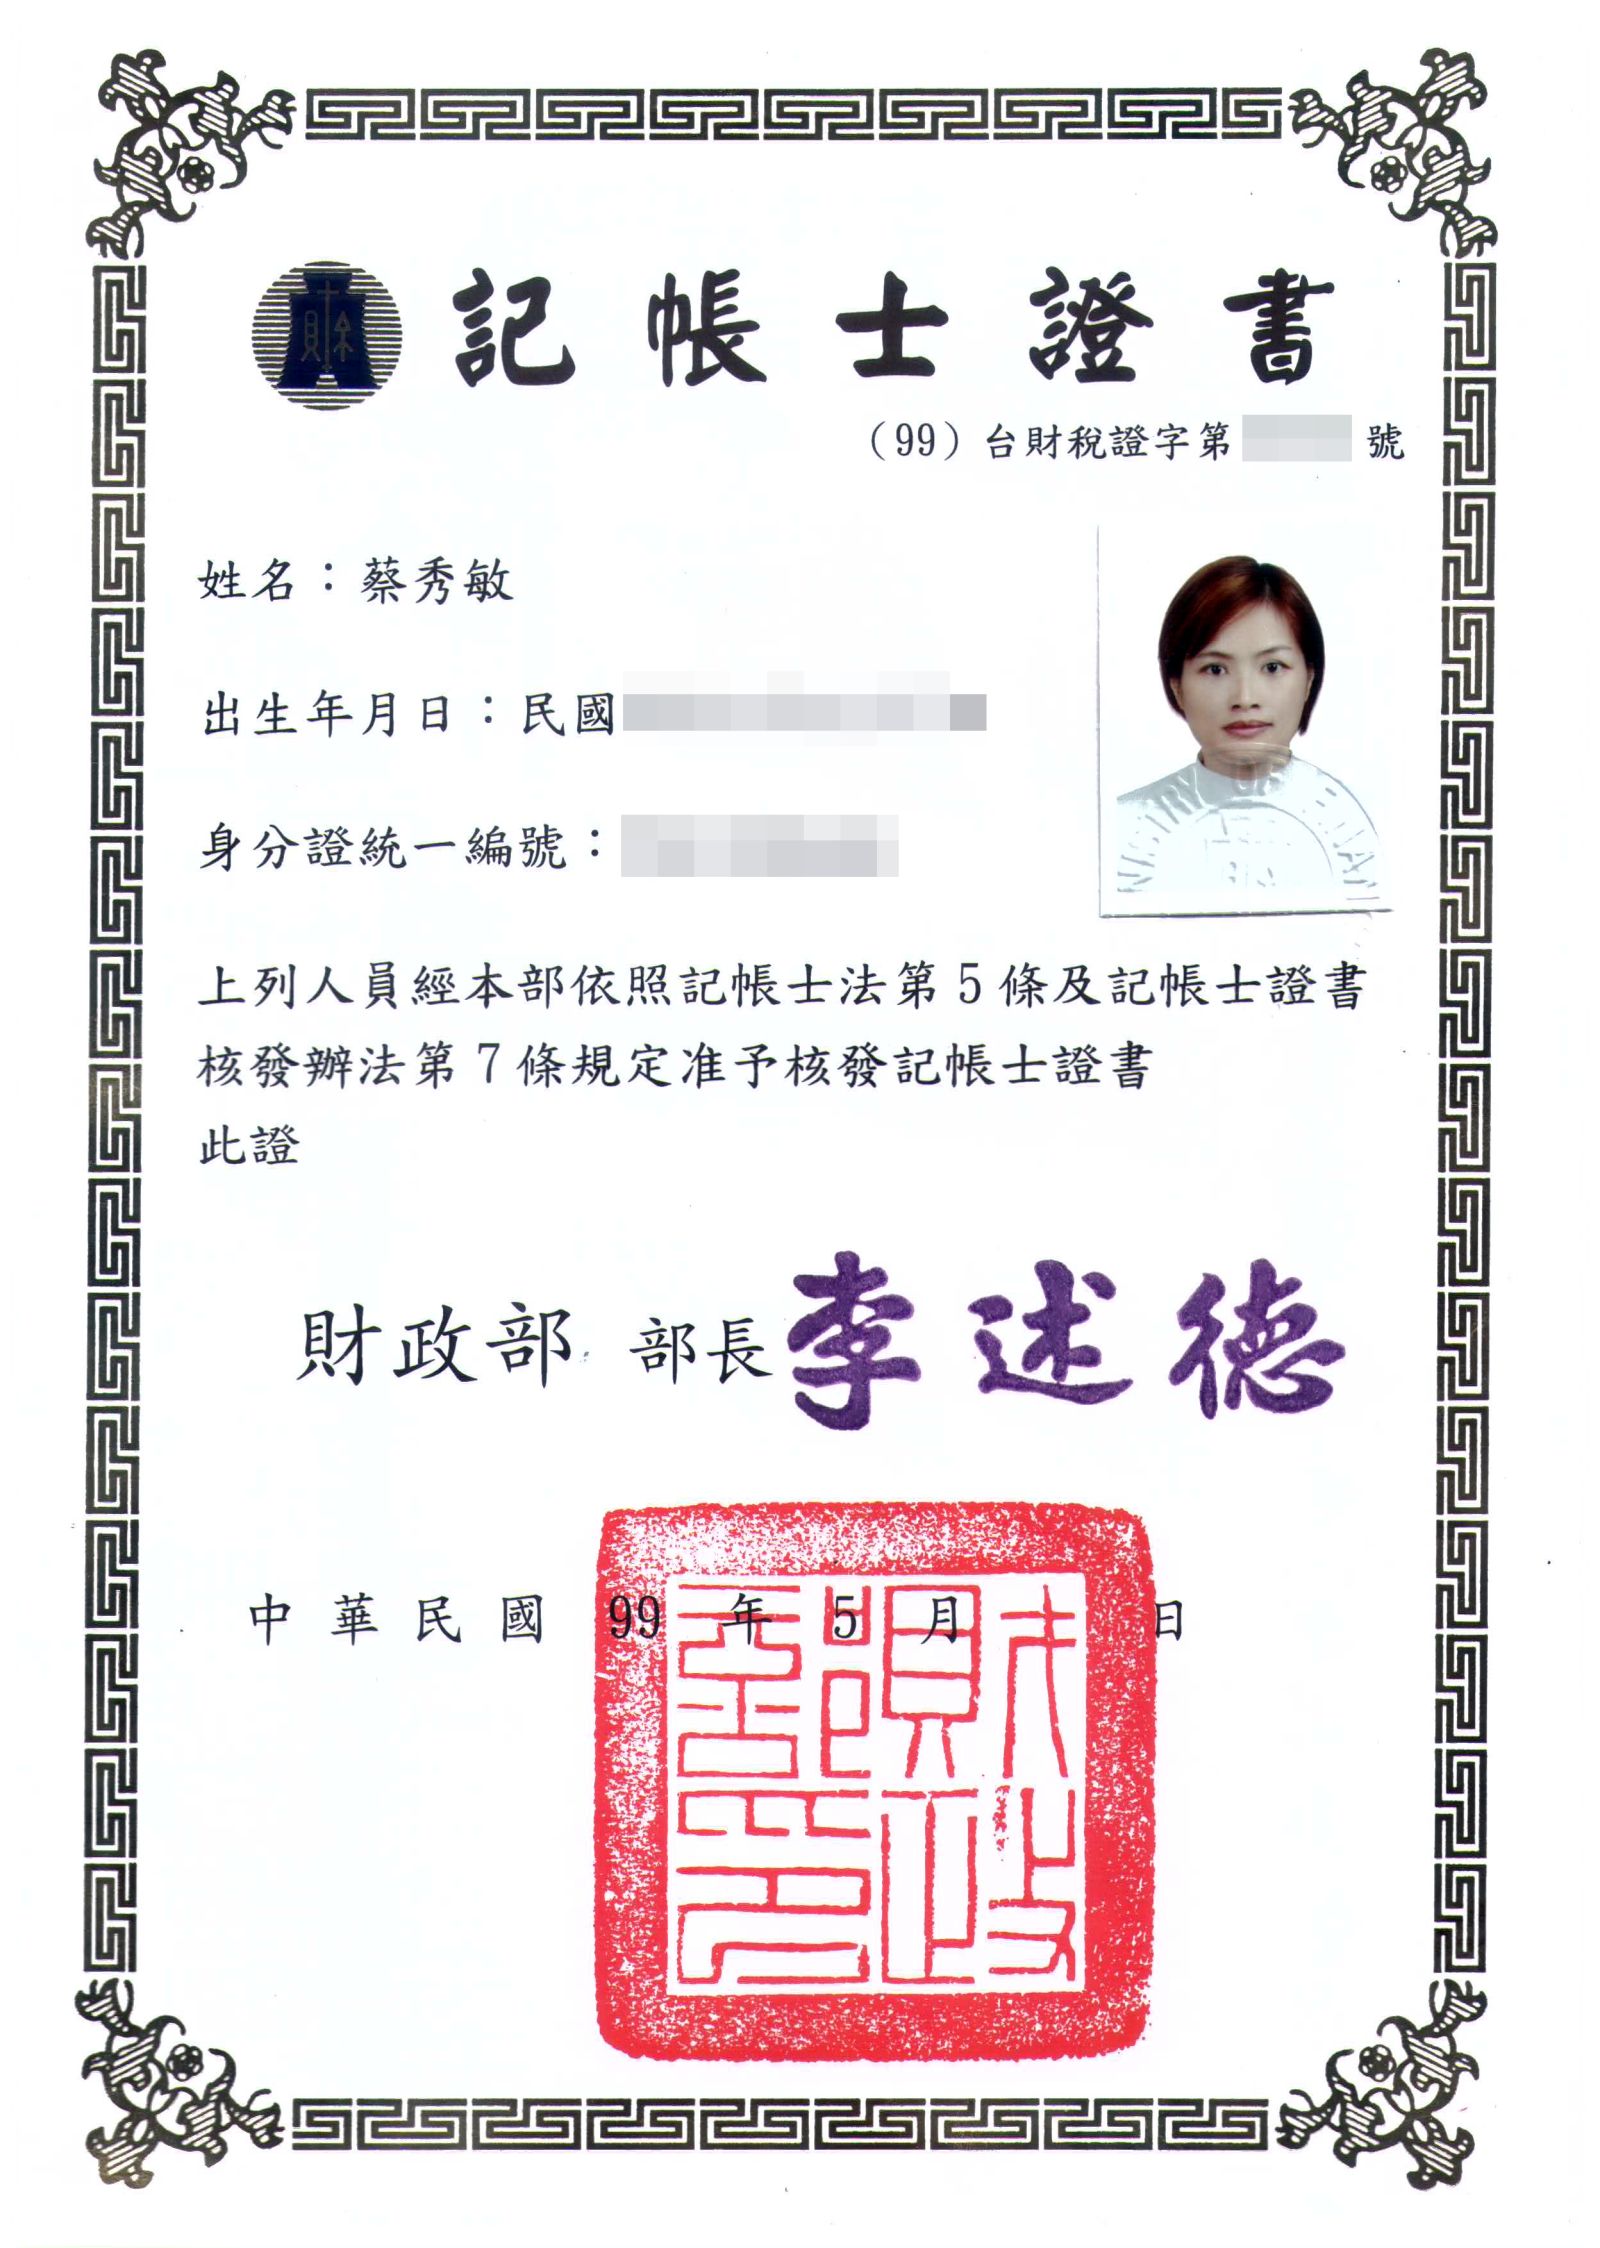 財
記帳士證書
（99）台財稅證字第 號
姓名：蔡秀敏
出生年月日：民國
身分證統一編號：
上列人員經本部依照記帳士法第5條及記帳士證書
核發辦法第7條規定准予核發記帳士證書
此證
財政部 部長 李述德
中華民國 99 年 5 月 日
財政部印